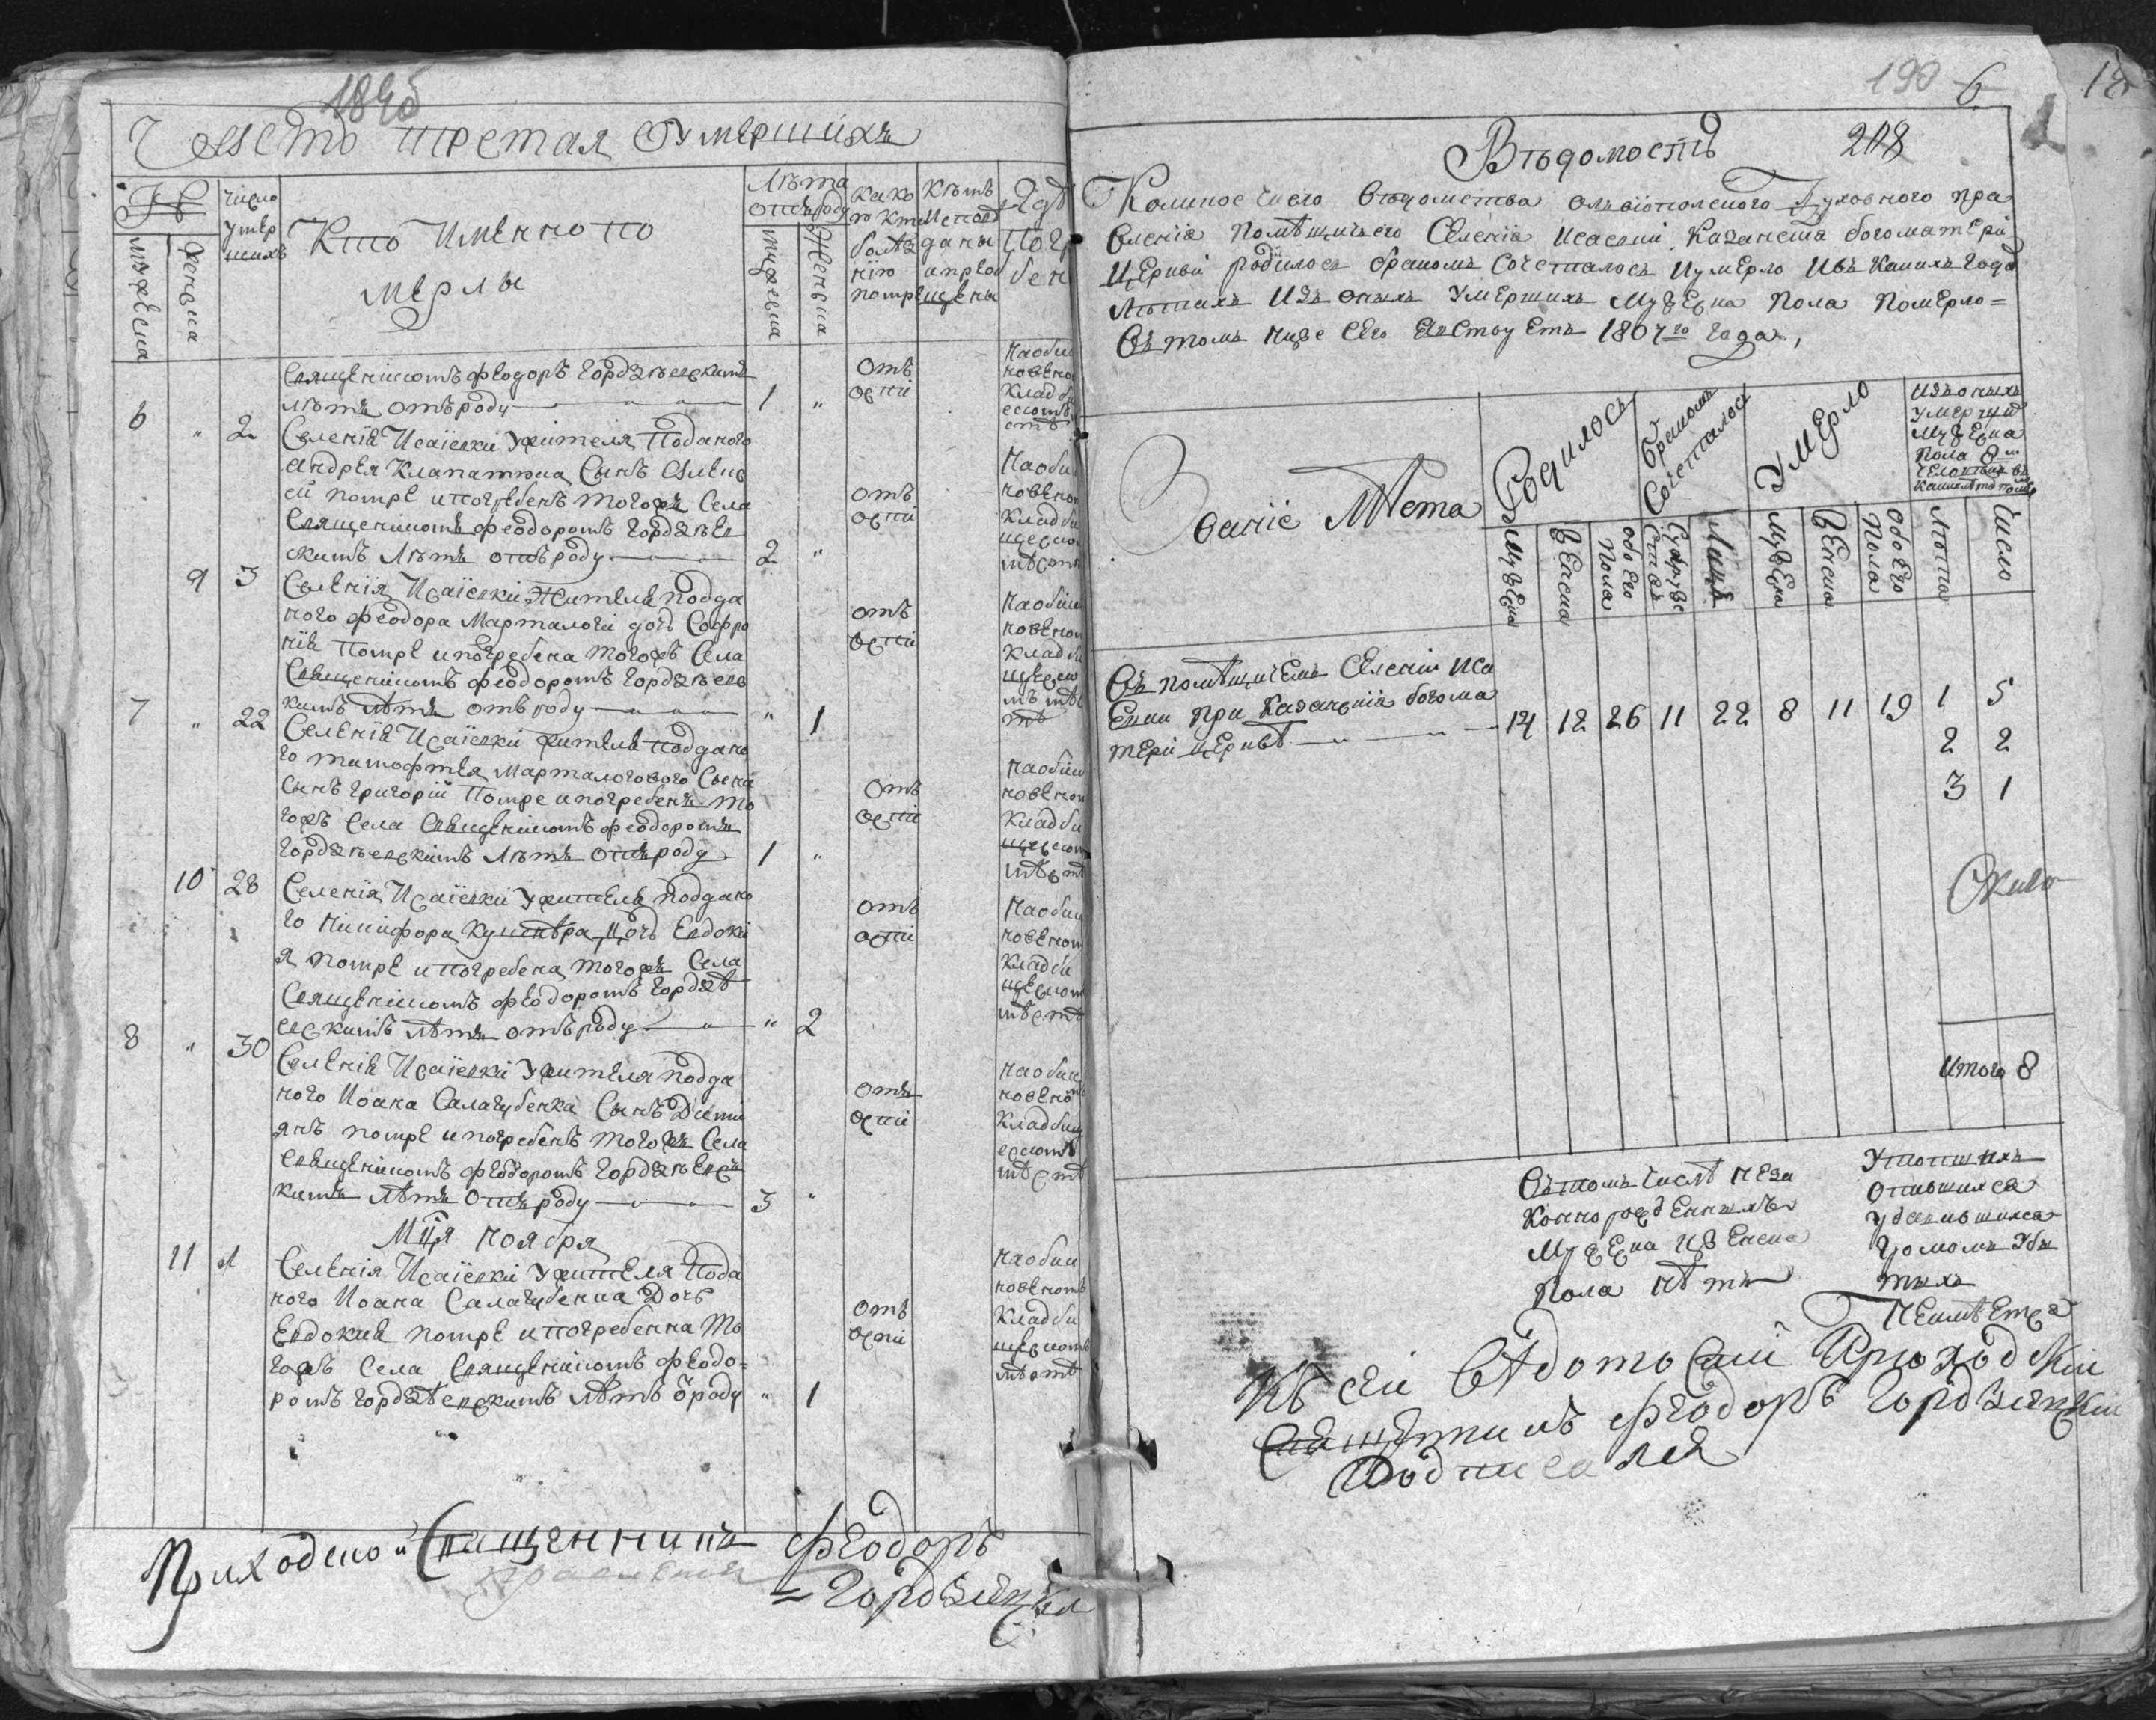 Часть третая Умершихъ
№
мужеска
женска
число умер шихъ
Кто именно по
мерлы
Лѣта
отъ роду
мужеска
женска
како
ю
болѣз
нію
помре
Кѣмъ
исповѣ
даны
и прио
щены
Где
погр
бен
Священикомъ Феодоръ Гордзѣевскимъ
лѣтъ отъ роду 1 "
6 " 2 Селенія Исаіевки жителя Поданого
Андрея Клапатюка Сынъ
помре и погребенъ тогожъ Села
Священикомъ Феодоромъ Гордзѣев
скимъ Лѣтъ отъ роду 2 "
9 3 Селенія Исаіевки Жителя подда
ного Феодора Марталоги дочь Софро
нія Помре и погребена тогожъ Села
Священикомъ Феодоромъ Гордзѣевс
кимъ лѣтъ отъ роду " 1
7 " 22 Селенія Исаіевки жителя поддано
го Тимофтея Марталогового Сына
сынъ Григорій Помре и погребенъ то
гожъ Села Священикомъ Феодоромъ
Гордзѣевскимъ Лѣтъ отъ роду 1 "
10 28 Селенія Исаіевки жителя поддано
го Никифора дочь Евдокі
я помре и погребена тогожъ Села
Священикомъ Феодоромъ Гордзѣ
евскимъ лѣтъ отъ роду " 2
8 " 30 Селенія Исаіевки жителя подда
ного Иоана Салагубенка Сынъ Дими
янъ помре и погребенъ тогожъ Села
Священикомъ Феодоромъ Гордзѣевс
кимъ лѣтъ отъ роду 3 "
Мця ноября
11 Селенія Исаіевки жителя Пода
ного Иоана Салагубенка Дочь
Евдокия помре и погребенна то
гожъ Села Священикомъ Феодо=
ромъ Гордзѣевскимъ лѣтъ ѿроду " 1
отъ
оспи
на обик
новеном
кладби
щескомъ
мѣстѣ
Приходской Священникъ Феодоръ
=Гордзиевский
190
6
208
Вѣдомость
Коликое число вѣдомства олвіопольского Духовного пра
вленія помѣщичьего Селенія Исаевки Казанскія богоматери
Церкви родилось бракомъ сочеталось и умерло и въ какихъ года
Лѣтахъ изъ оныхъ умершихъ мужеска пола померло=
Въ томъ ниже сего явствуетъ 1807го года,
Званіе Мѣста
Родилось
бракомъ
Сочеталось
Умерло
изъ оныхъ
умершихъ
мужеска
пола 8м
мужеска
женска
обоего
пола
Супруже
ствъ
Лицъ
мужеска
женска
обоего
пола
Лѣта
Число
Въ помѣщичьемъ Селеніи Иса
евки при Казанскія богома
тери церквѣ 14 12 26 11 22 8 11 19 1 5
2 2
3 1
Итого 8
Въ томъ числѣ неза
коннорожденныхъ
мужеска и женска
пола нѣтъ
Утопшихъ
опившихся
удавившихся
громомъ уби
тыхъ
Неимѣется
Къ сеи вѣдомости Приходский
Священникъ Феодоръ Гордзиевский
Подписался